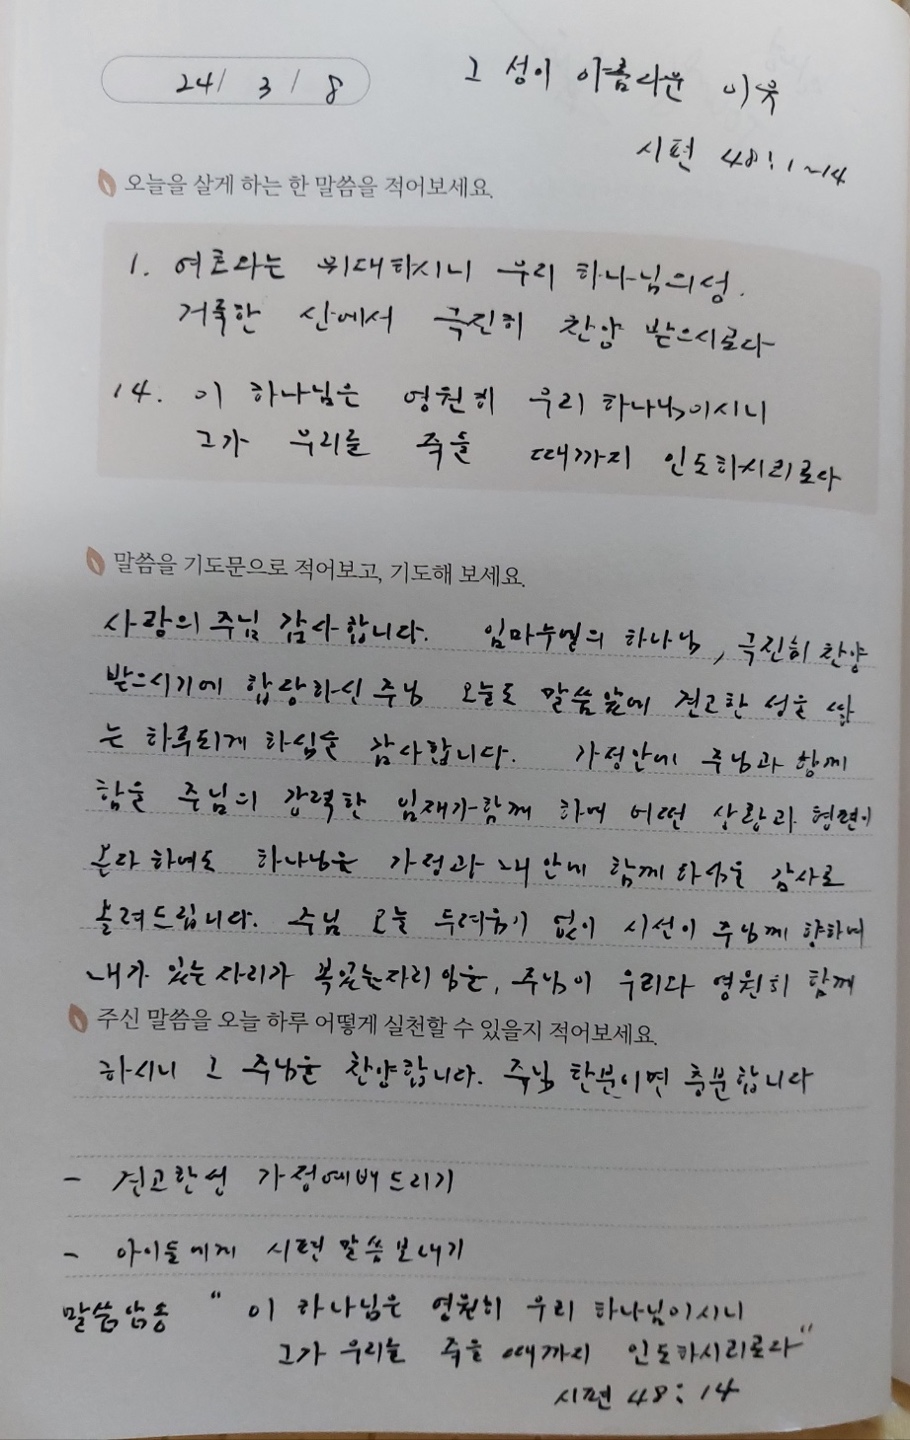 24/ 3/ 8
그 성이 아름다운 이웃
시편 48:1~14
오늘을 살게 하는 한 말씀을 적어보세요.
1. 여호와는 위대하시니 우리 하나님의성.
거룩한 산에서 극진히 찬양 받으시로다
14. 이 하나님은 영원히 우리 하나님이시니
그가 우리를 죽을 때까지 인도하시리로다
말씀을 기도문으로 적어보고, 기도해 보세요.
사랑의 주님 감사합니다. 임마누엘의 하나님, 극진히 찬양
받으시기에 합당하신 주님 오늘도 말씀앞에 견고한 성을 쌓
는 하루되게 하심을 감사합니다. 가정안에 주님과 함께
함을 주님의 강력한 임재가 함께 하여 어떤 상황과 형편이
온다 하여도 하나님을 가정과 내 안에 함께 감사로
올려드립니다. 주님 오늘 두려움이 없이 시선이 주님께 향하며
내가 있는 자리가 복있는자리 임을, 주님이 우리와 영원히 함께
주신 말씀을 오늘 하루 어떻게 실천할 수 있을지 적어보세요.
하시니 그 주님을 찬양합니다. 주님 한분이면 충분합니다
- 견고한성 가정예배드리기
- 아이들에게 시편 말씀 보내기
말씀암송 " 이 하나님은 영원히 우리 하나님이시니
그가 우리를 죽을 때까지 인도하시리로다"
시편 48:14